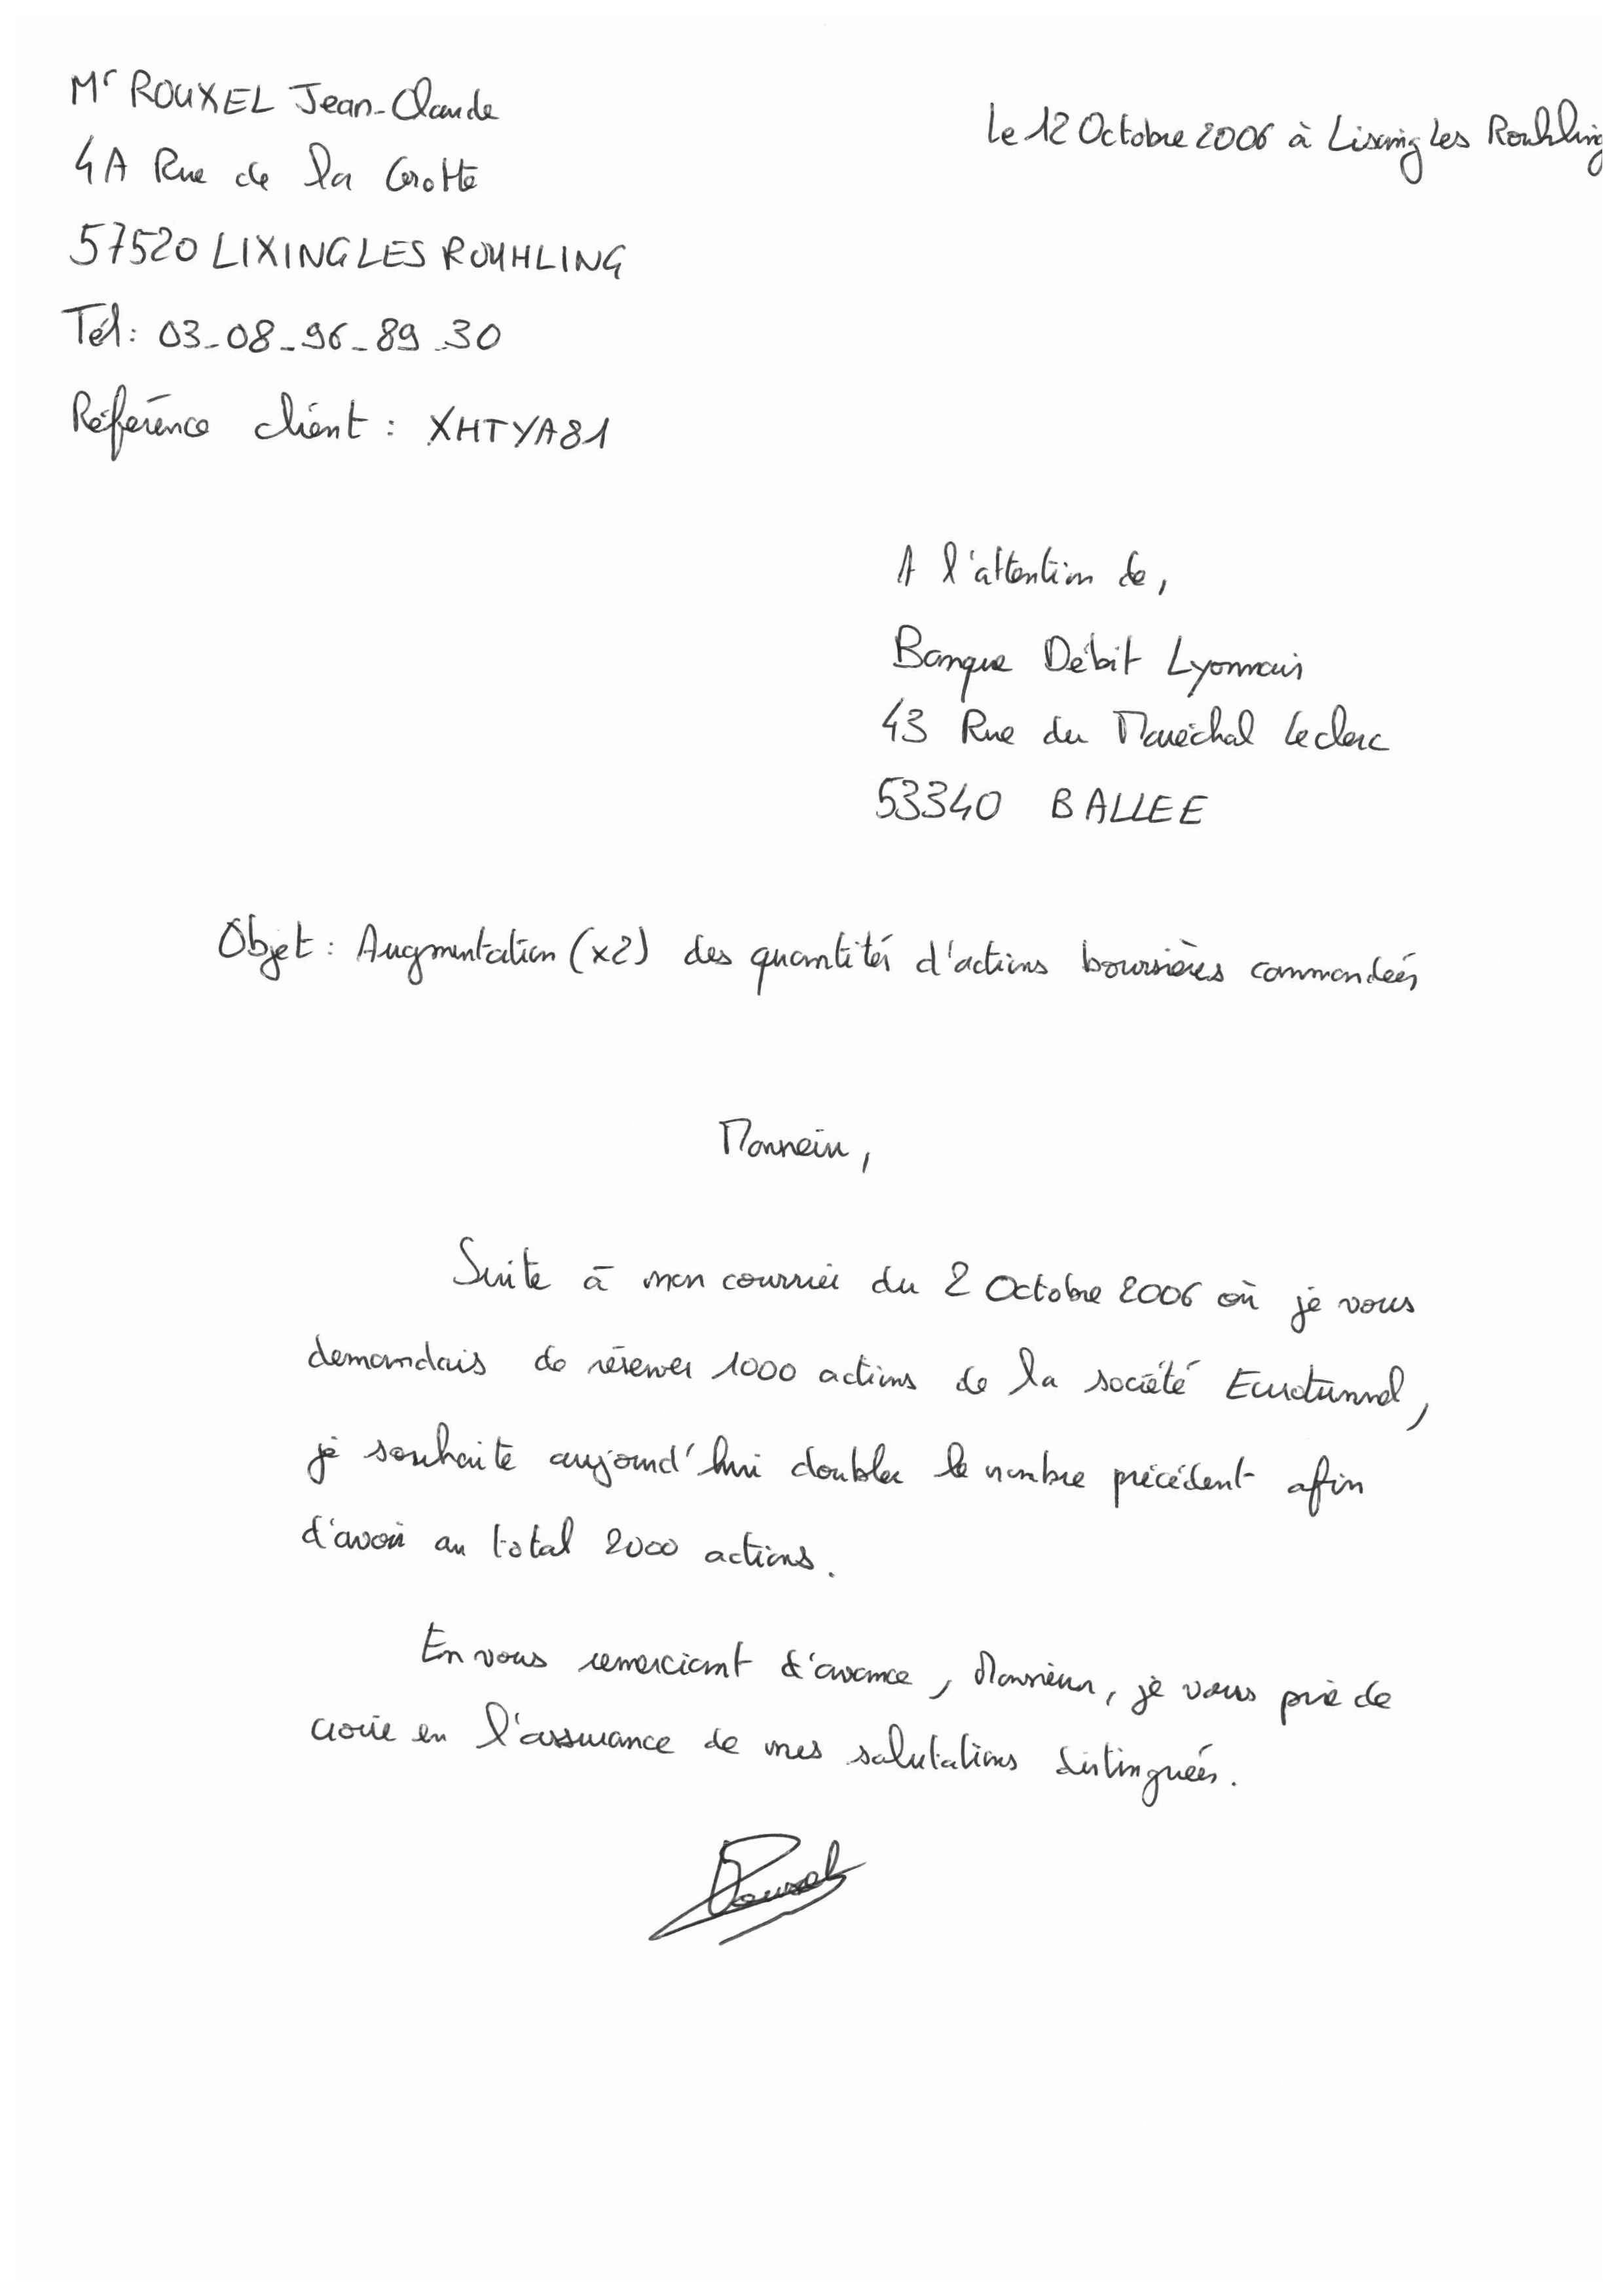 Mr ROUXEL Jean-Claude
Le 12 Octobre 2006 à Lixing Les Rouhling
4A Rue de la Grotte
57520 LIXING LES ROUHLING
Tél : 03-08-96-89-30
Référence client : XHTYA81
A l'attention de,
Banque Débit Lyonnais
43 Rue du Maréchal Leclerc
53340 BALLEE
Objet : Augmentation (x2) des quantités d'actions boursières commandées
Monsieur,
Suite à mon courrier du 2 Octobre 2006 où je vous
demandais de réserver 1000 actions de la société Eurotunnel,
je souhaite aujourd'hui doubler le nombre précédent afin
d'avoir au total 2000 actions.
En vous remerciant d'avance, Monsieur, je vous prie de
croire en l'assurance de mes salutations distinguées.
Rouxel